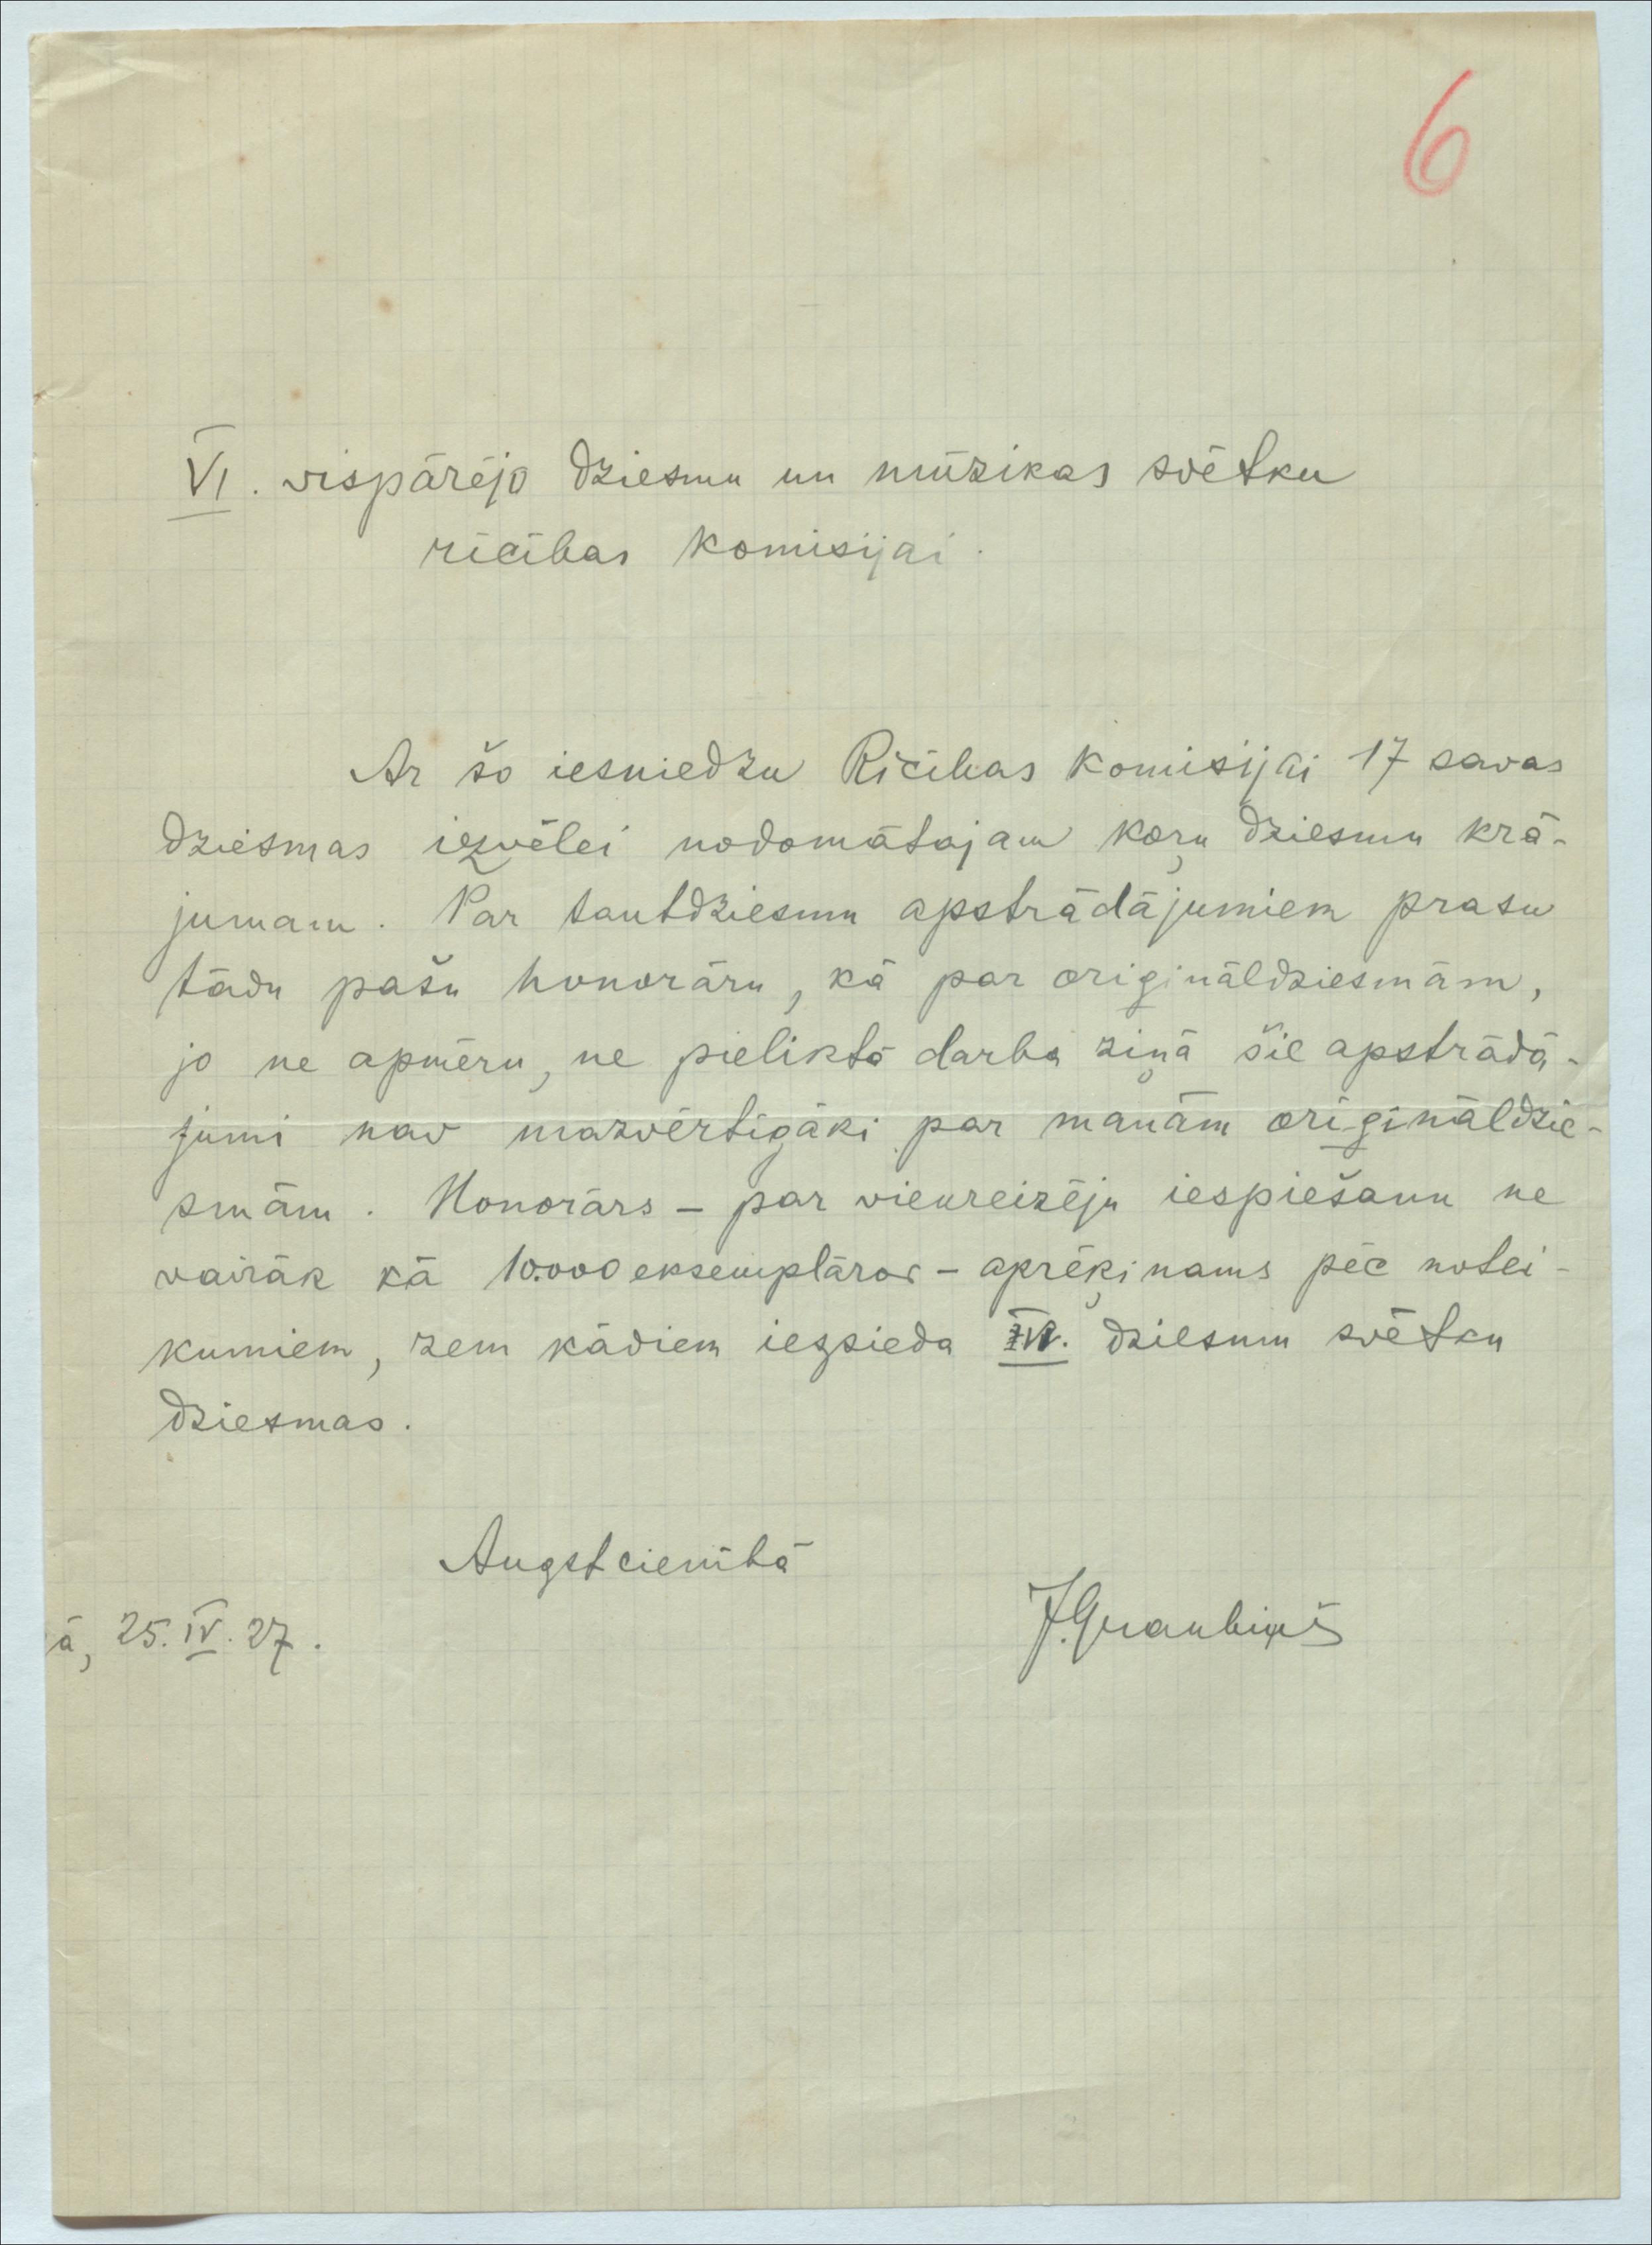 6
VI. vispārējo dziesmu un mūzikas svētku
rīcības komisijai.
Ar šo iesniedzu Rīcības komisijai 17 savas
dziesmas izvēlei nodomātajam koŗu dziesmu krā-
jumam. Par tautdziesmu apstrādājumiem prasu
tādu pašu honorāru, kā par origināldziesmām,
jo ne apmēru, ne pieliktā darba ziņā šie apstrādā-
jumi nav mazvērtīgāki par manām originäldzie-
smām. Honorārs – par vienreizēju iespiešanu ne
vairāk kā 10.000 eksemplāros – aprēķinams pēc notei-
kumiem, zem kādiem iespieda dziesmu svētku
dziesmas.
Augstcienībā
ā, 25. IV. 27.
J. Graubiņš